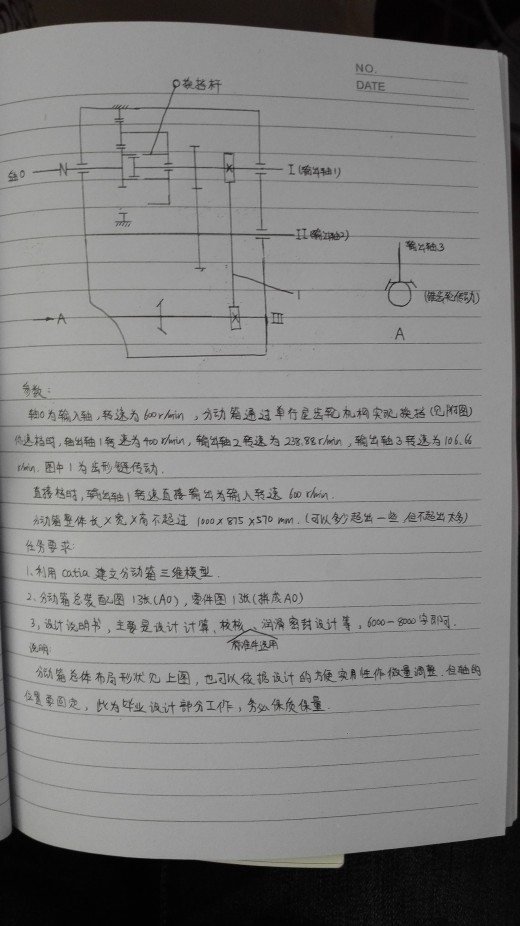 NO.
DATE
换挡杆
轴0 N I (输出轴1)
II (输出轴2)
输出轴3
1
(锥齿轮传动)
A III
A
参数:
轴0为输入轴,转速为600r/min,分动箱通过单行星齿轮机构实现换挡(见附图)
低速档时,输出轴1转速为400r/min,输出轴2转速为238.88r/min,输出轴3转速为106.66
r/min.图中1为齿形链传动.
直接档时,输出轴1转速直接输出为输入转速600r/min.
分动箱整体长×宽×高不超过1000×875×570mm.(可以多少超出一些,但不超出太多)
任务要求:
1、利用catia建立分动箱三维模型.
2、分动箱总装配图1张(A0),零件图1张(拼成A0)
3、设计说明书,主要是设计计算、校核、润滑密封设计等,6000-8000字即可.
标准件选用
说明:
分动箱总体布局形状见上图,也可以依据设计的方便实用性作微量调整.但轴的
位置要固定,此为毕业设计部分工作,务必保质保量.